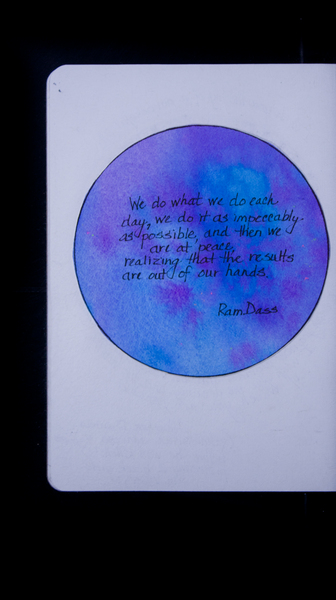 We do what we do each
day, we do it as impeccably
as possible, and then we
are at peace,
realizing that the results
are out of our hands.
Ram Dass